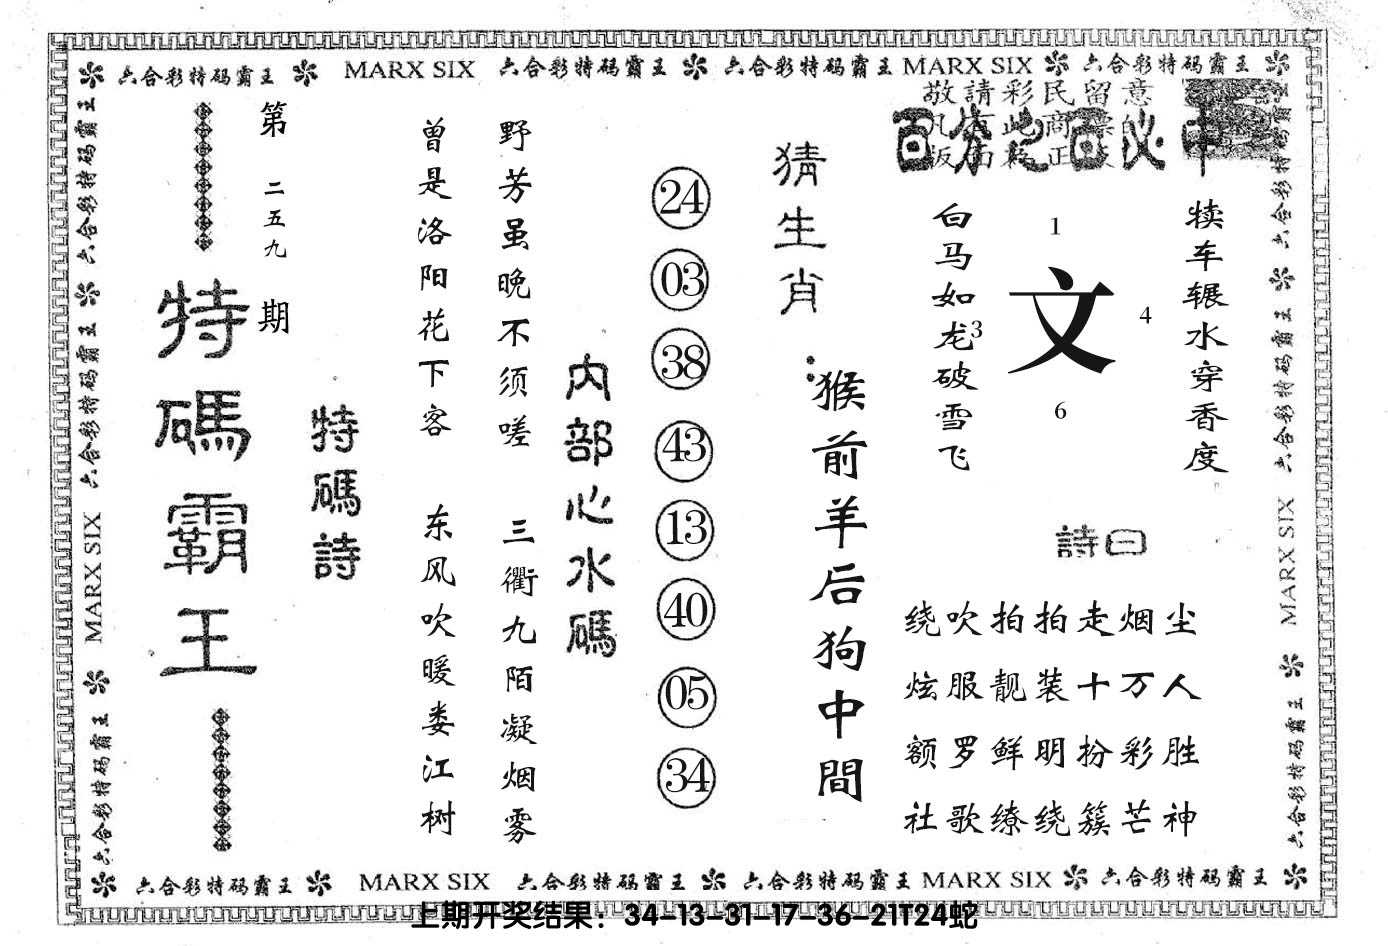 六合彩特码霸王 MARX SIX 六合彩特码霸王 六合彩特码霸王 MARX SIX 六合彩特码霸王
敬請彩民留意
百分之百必中
第二五九期
特碼霸王
特碼詩
曾是洛阳花下客
野芳虽晚不须嗟
东风吹暖娄江树
三衢九陌凝烟雾
内部心水碼
24
03
38
43
13
40
05
34
猜生肖:
猴前羊后狗中間
白马如龙破雪飞
1
3
文
4
6
犊车辗水穿香度
詩曰
绕吹拍拍走烟尘
炫服靓装十万人
额罗鲜明扮彩胜
社歌缭绕簇芒神
六合彩特码霸王 MARX SIX 六合彩特码霸王
六合彩特码霸王 MARX SIX 六合彩特码霸王
六合彩特码霸王 MARX SIX 六合彩特码霸王 六合彩特码霸王 MARX SIX 六合彩特码霸王
上期开奖结果：34-13-31-17-36-21T24蛇